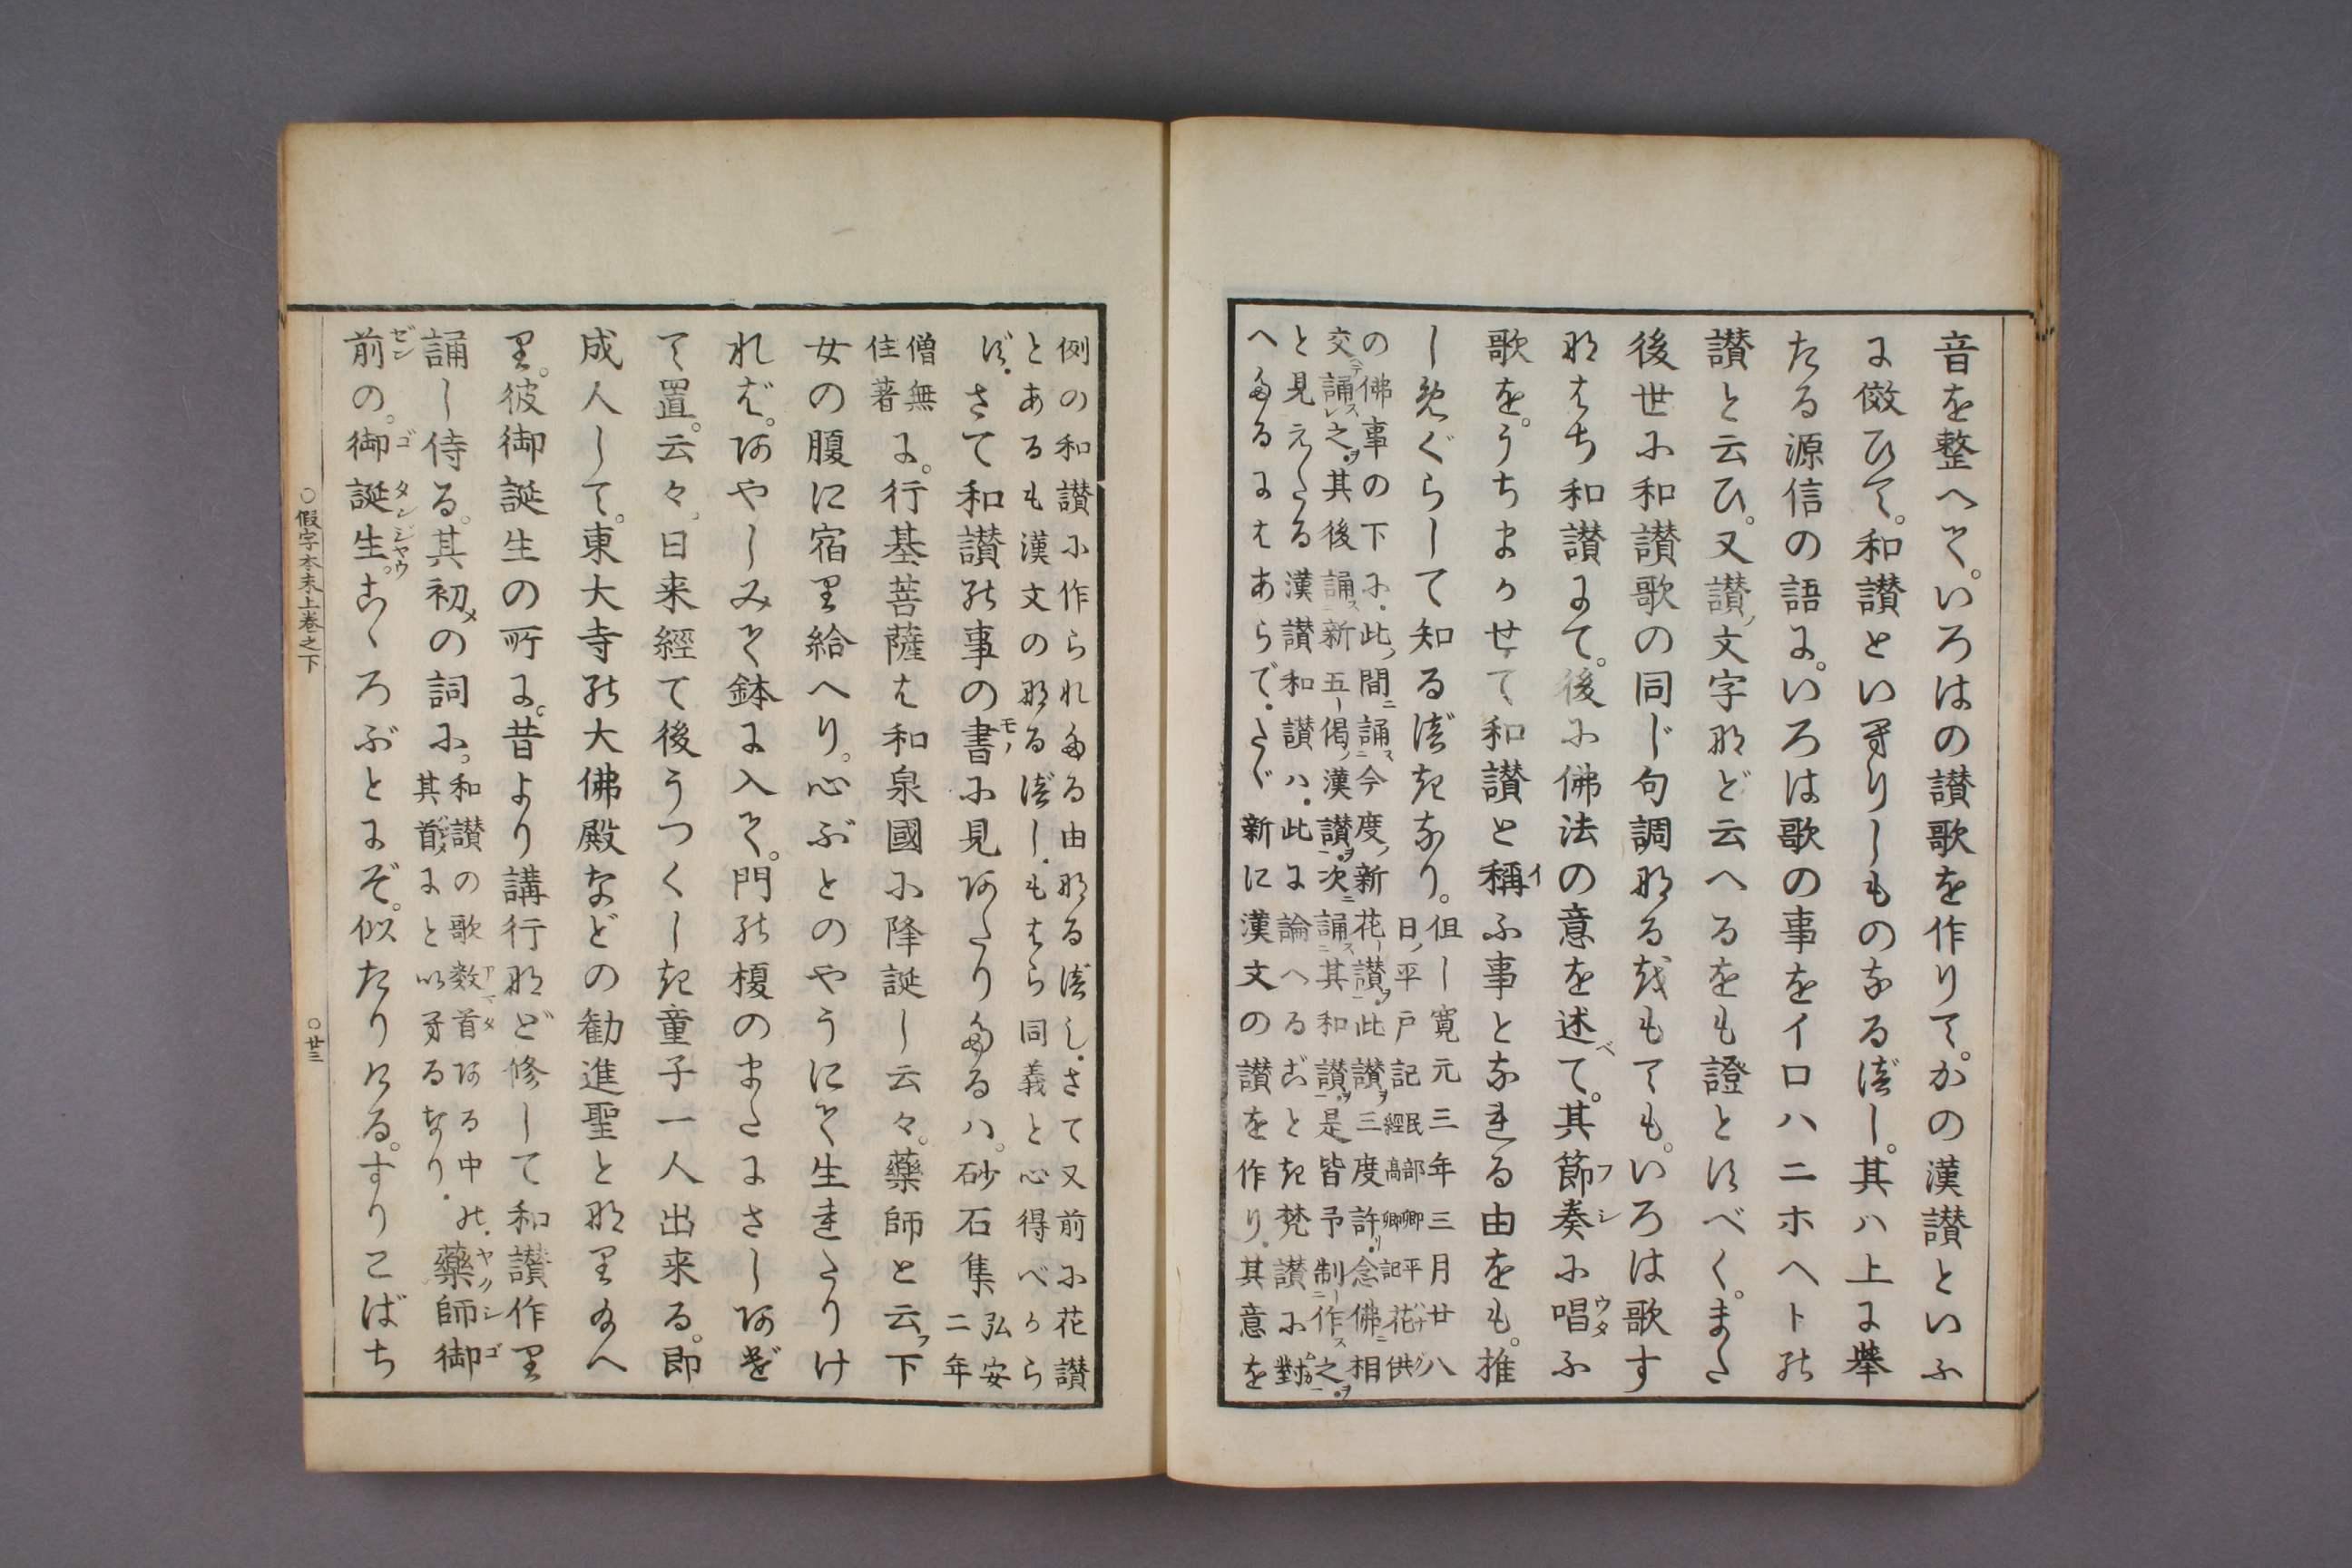 音を整へて。いろはの讃歌を作りて。かの漢讃といふ
に倣ひて。和讃といへりしものなるべし。其ハ上に挙
たる源信の語に。いろは歌の事をイロハニホヘトの
讃と云ひ。又讃ノ文字など云へるをも證とすべく。また
後世に和讃歌の同じ句調なるをもても。いろは歌す
なはち和讃にて。後に佛法の意を述べて。其節奏フシに唱ウタふ
歌を。うちまかせて和讃と稱イふ事となれる由をも。推
しめぐらして知るべきなり。
但し寛元三年三月廿八
日ノ平戸記民部卿平經高卿記花供
の佛事の下に。此ノ間ニ誦ス今度ノ新花讃ヲ。此讃ヲ三度許リ。念佛ニ相
交ヘテ誦ス之ヲ。其後誦ス新五偈ノ漢讃ヲ。次ニ誦ス其和讃ヲ。是皆予制作ス之ヲ。
と見えたる漢讃和讃ハ。此に論へるごとき梵讃に對
へたるにはあらで。たゞ新に漢文の讃を作り。其意を
例の和讃に作られたる由なるべし。さて又前に花讃
とあるも漢文のなるべし。もはら同義と心得べから
ず。さて和讃の事の書モノに見あたりたるハ。砂石集弘安二年
僧無住著に。行基菩薩は和泉國に降誕し云々。藥師と云フ下
女の腹に宿り給へり。心ぶとのやうにて生れたりけ
れば。あやしみて鉢に入て。門の榎のまたにさしあげ
て置。云々。日来經て後うつくしき童子一人出来る。即
成人して。東大寺の大佛殿などの勧進聖となり給へ
り。彼御誕生の所に。昔より講行など修して和讃作り
誦し侍る。其初メの詞に。和讃の歌数首アマタある中の。其首ハジメにと以へるなり。藥師ヤクシ御ゴ
前ゼンの。御ゴ誕生タンジヤウ。心ころぶとにぞ。似たりける。すりこばち
○假字本末上巻之下
○廿三